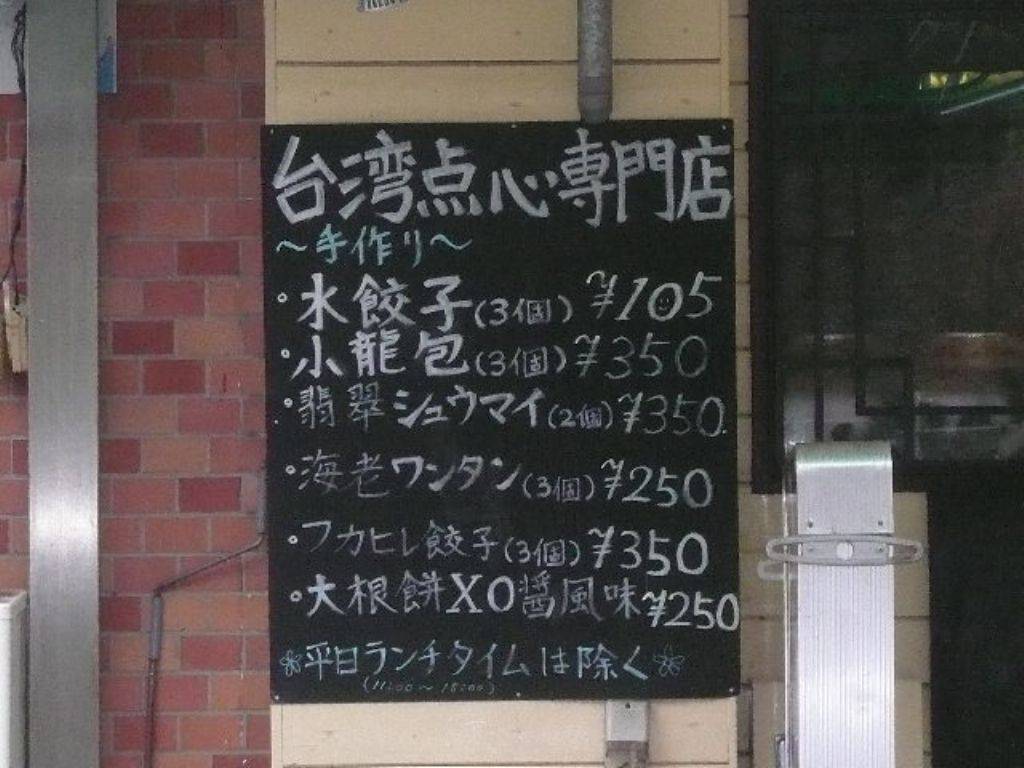 台湾点心専門店
～手作り～
・水餃子(3個) ¥105
・小龍包(3個) ¥350
・翡翠シュウマイ(2個) ¥350.
・海老ワンタン(3個) ¥250
・フカヒレ餃子(3個) ¥350
・大根餅XO醤風味 ¥250
平日ランチタイムは除く
(11:00～15:00)